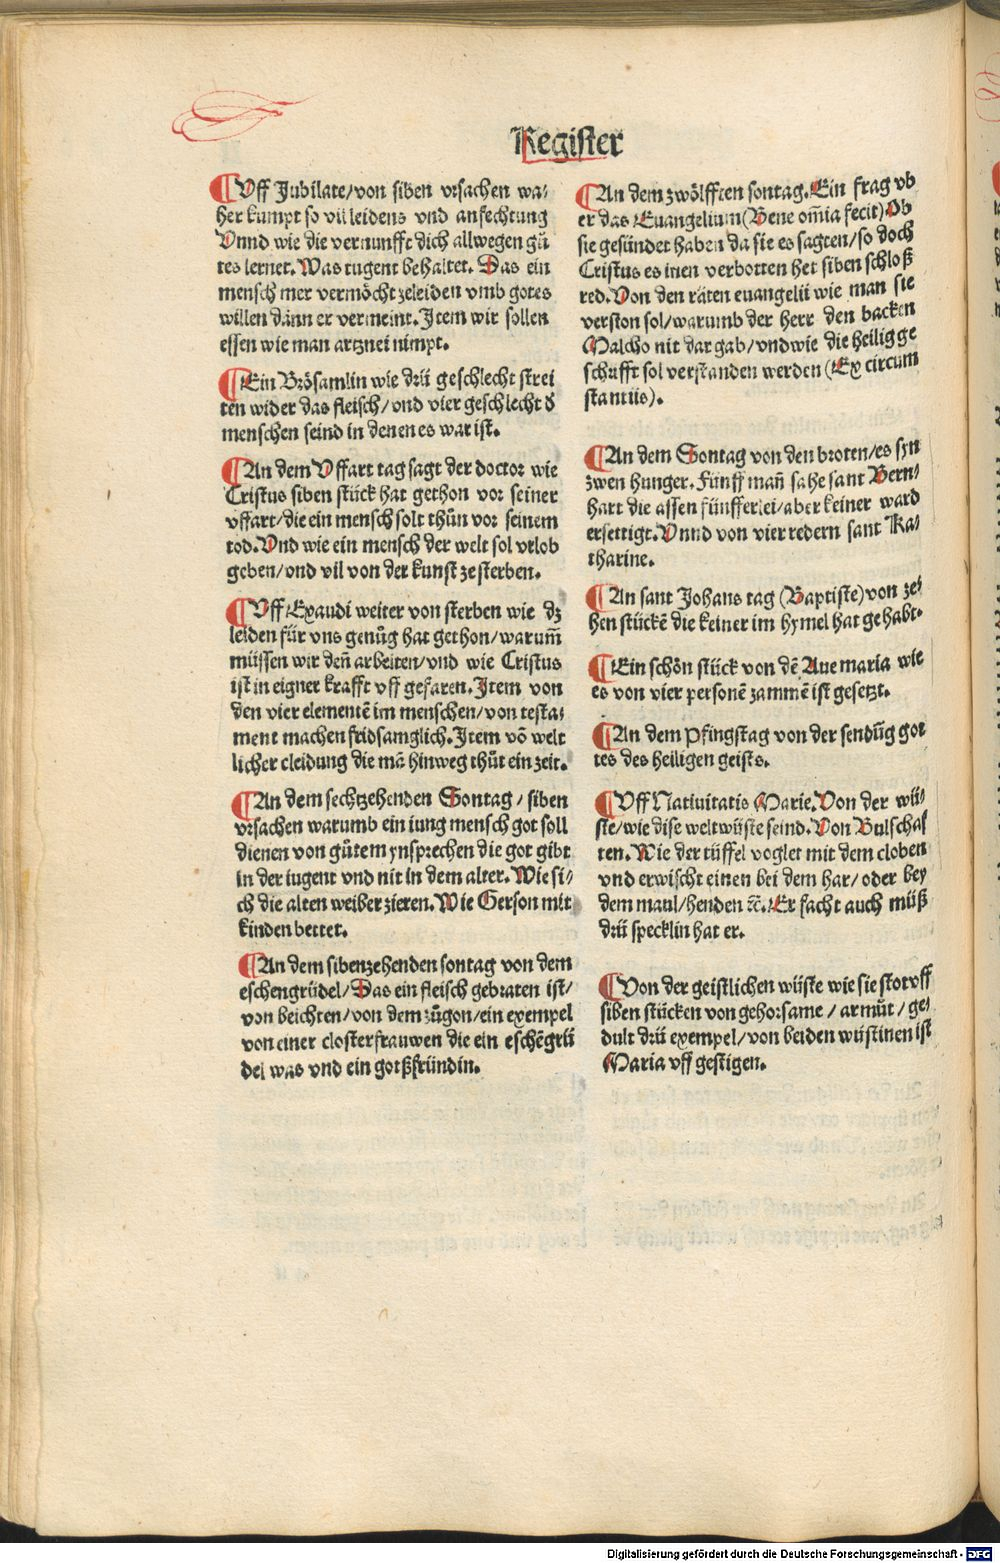 Register
¶Vff Jubilate/von siben vrsachen wa/
her kumpt so vil leidens vnd anfechtung
Vnnd wie die vernunfft dich allwegen gů
tes lernet. Was tugent behaltet. Das ein
mensch mer vermöcht zeleiden vmb gotes
willen dann er vermeint. Jtem wir sollen
essen wie man artznei nimpt.
¶Ein Brösamlin wie drü geschlecht strei
ten wider das fleisch/vnd vier geschlecht d̕
menschen seind in denen es war ist.
¶An dem Vffart tag sagt der doctor wie
Cristus siben stück hat gethon vor seiner
vffart/die ein mensch solt thůn vor seinem
tod. Vnd wie ein mensch der welt sol vrlob
geben/vnd vil von der kunst ze sterben.
¶Vff Exaudi weiter von sterben wie dz
leiden für vns genůg hat gethon/warum̃
müssen wir den̄ arbeiten/vnd wie Cristus
ist in eigner krafft vff gefaren. Jtem von
den vier elementē im menschen/von testa/
ment machen fridsamglich. Jtem vō welt
licher cleidung die mā hinweg thůt ein zeit.
¶An dem sechtzehenden Sontag/siben
vrsachen warumb ein iung mensch got soll
dienen von gůtem ynsprechen die got gibt
in der iugent vnd nit in dem alter. Wie si/
ch die alten weiber zieren. Wie Gerson mit
kinden bettet.
¶An dem sibenzehenden sontag von dem
eschengrüdel/Das ein fleisch gebraten ist/
von beichten/von dem zůgon/ein exempel
von einer closterfrauwen die ein eschēgrü
del was vnd ein gotßfründin.
¶An dem zwölfften sontag. Ein frag ob
er das Euangelium (Bene om̄ia fecit) Ob
sie gesündet haben da sie es sagten/so doch
Cristus es inen verbotten het siben schloß
red. Von den räten euangelii wie man sie
verston sol/warumb der herr den backen
Malcho nit dar gab/vnd wie die heilig ge
schrifft sol verstanden werden (Ex circum
stantiis).
¶An dem Sontag von den broten/es syn
zwen hunger. Fünff man̄ sahe sant Bern/
hart die assen fünfferlei/aber keiner ward
ersettigt. Vnnd von vier redern sant Ka/
tharine.
¶An sant Johans tag (Baptiste) von ze/
hen stückē die keiner im hymel hat gehabt.
¶Ein schön stück von dē Aue maria wie
es von vier personē zammē ist gesetzt.
¶An dem Pfingstag von der sendūg got
tes des heiligen geists.
¶Vff Natiuitatis Marie. Von der wü/
ste/wie dise welt wüste seind. Von Bulschaf
ten. Wie der tüffel voglet mit dem cloben
vnd erwischt einen bei dem har/oder bey
dem maul/henden ꝛc̄. Er facht auch müß
drü specklin hat er.
¶Von der geistlichen wüste wie sie stot vff
siben stücken von gehorsame/armůt/ge/
dult drü exempel/von beiden wüstinen ist
Maria vff gestigen.
Digitalisierung gefördert durch die Deutsche Forschungsgemeinschaft - DFG